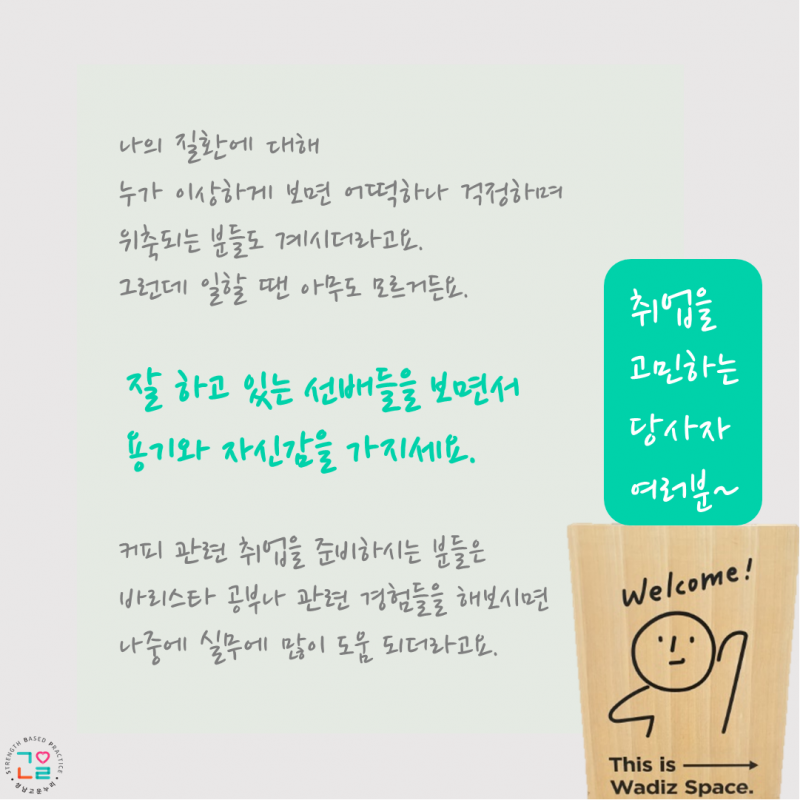 나의 질환에 대해
누가 이상하게 보면 어떡하나 걱정하며
위축되는 분들도 계시더라고요.
그런데 일할 땐 아무도 모르거든요.
잘 하고 있는 선배들을 보면서
용기와 자신감을 가지세요.
커피 관련 취업을 준비하시는 분들은
바리스타 공부나 관련 경험들을 해보시면
나중에 실무에 많이 도움 되더라고요.
취업을
고민하는
당사자
여러분~
Welcome!
This is
Wadiz Space.
STRENGTH BASED PRACTICE
성남고운누리
고을